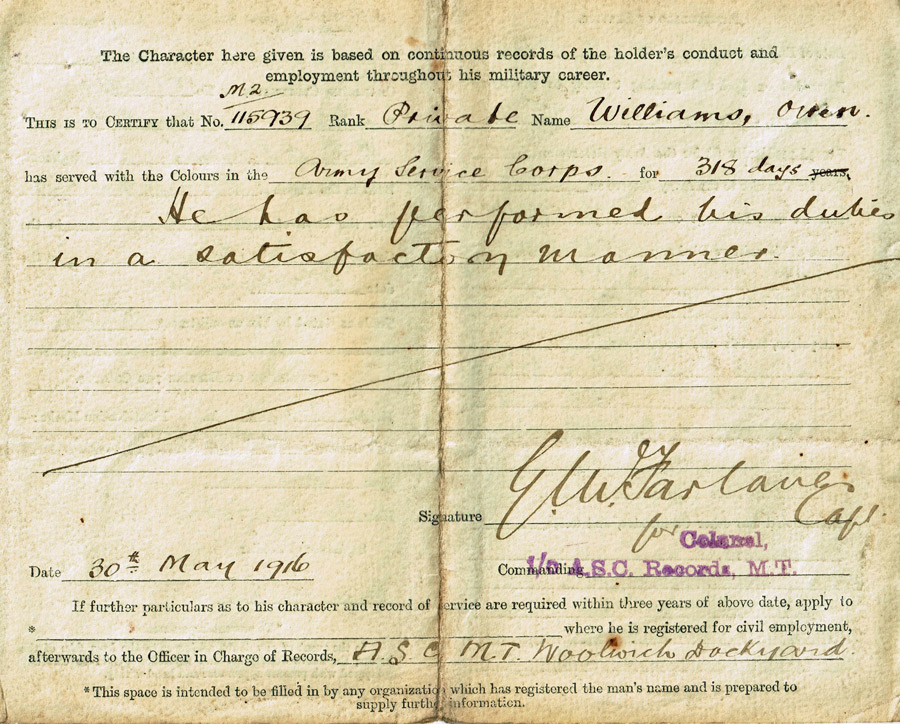 The Character here given is based on continuous records of the holder's conduct and
employment throughout his military career.
M2.
THIS IS TO CERTIFY that No. 115939 Rank Private Name Williams, Owen.
has served with the Colours in the Army Service Corps. for 318 days years,
He has performed his duties
in a satisfactory manner.
Signature Farlane
Capt.
for Colonel,
Commanding, A.S.C. Records, M.T.
Date 30th May 1916
If further particulars as to his character and record of service are required within three years of above date, apply to
* where he is registered for civil employment,
afterwards to the Officer in Charge of Records, A.S.C. M.T. Woolwich Dockyard.
* This space is intended to be filled in by any organization which has registered the man's name and is prepared to
supply further information.